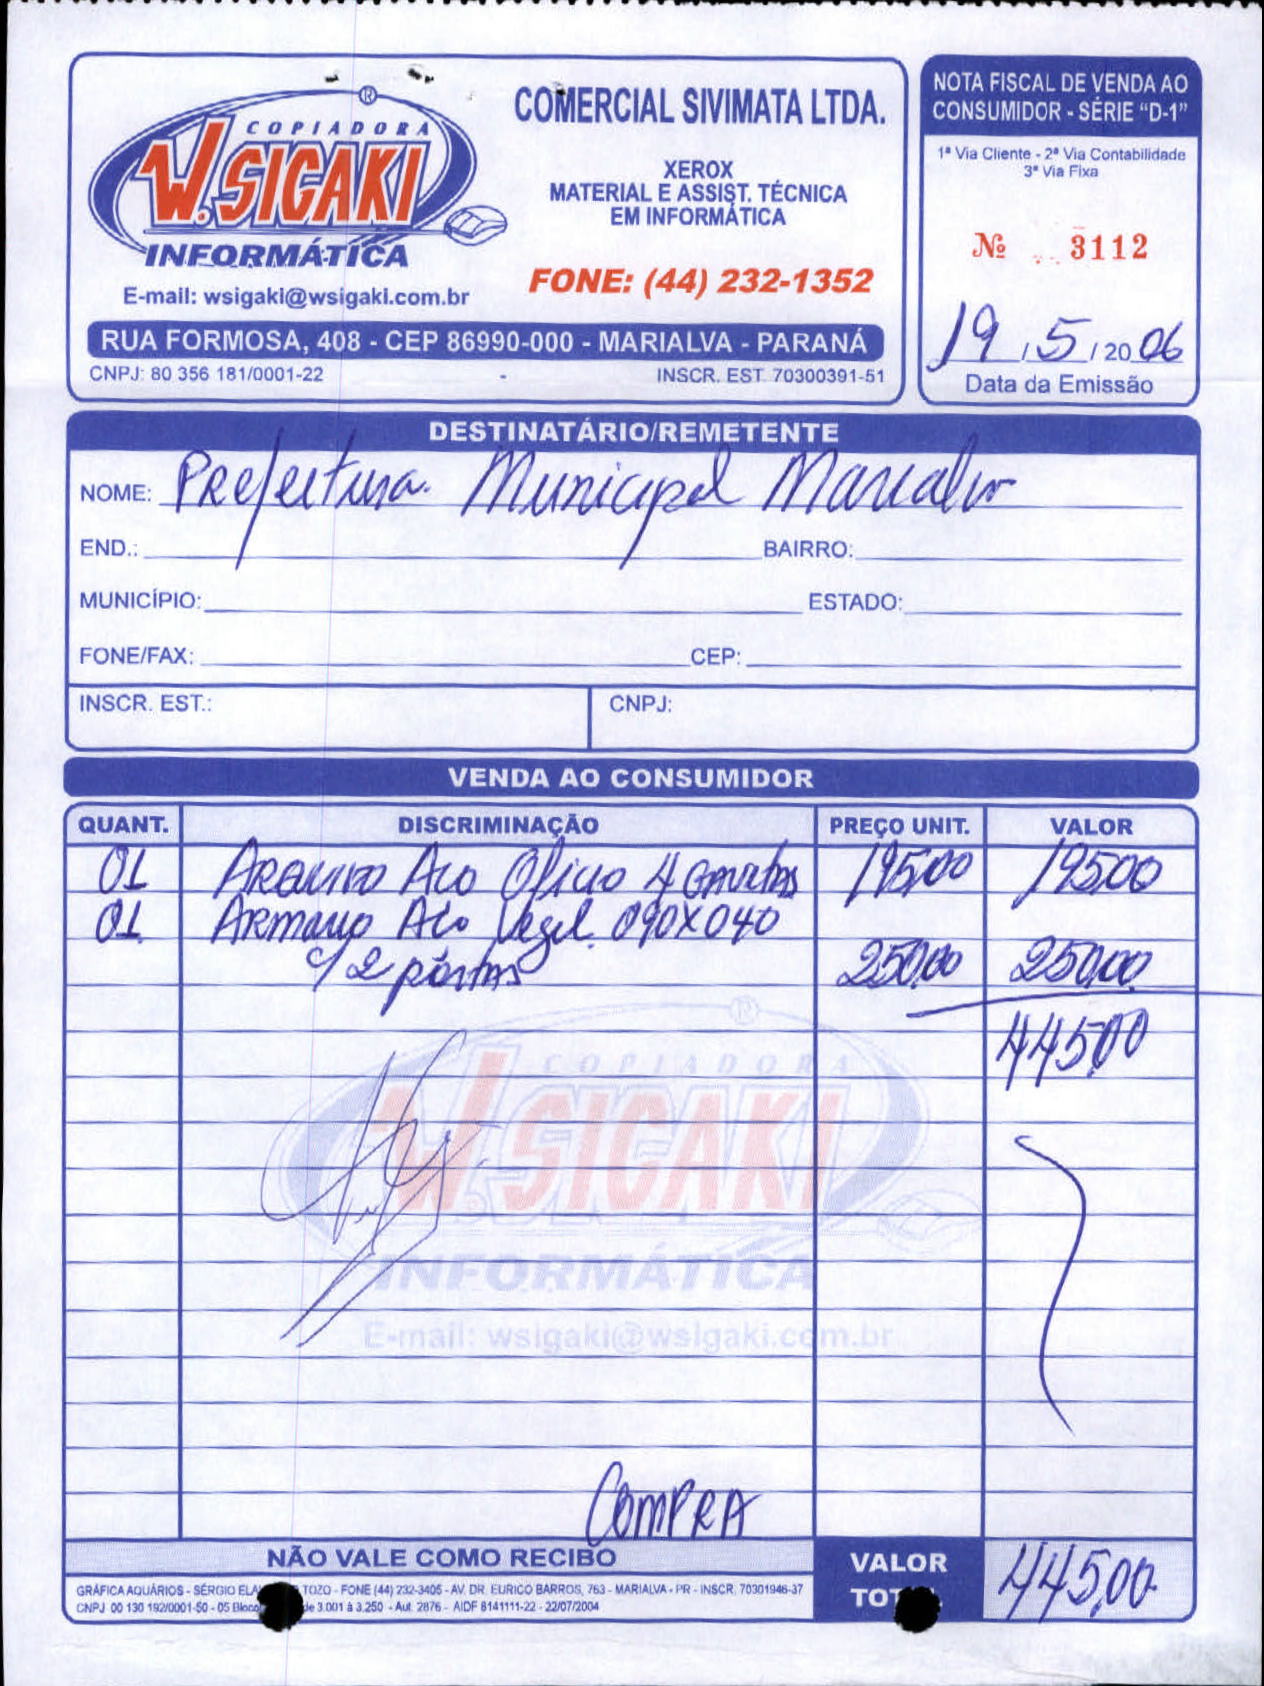 COPIADORA
W.SIGAKI
INFORMÁTICA
E-mail: wsigaki@wsigaki.com.br
COMERCIAL SIVIMATA LTDA.
XEROX
MATERIAL E ASSIST. TÉCNICA
EM INFORMÁTICA
FONE: (44) 232-1352
RUA FORMOSA, 408 - CEP 86990-000 - MARIALVA - PARANÁ
CNPJ: 80 356 181/0001-22 INSCR. EST. 70300391-51
NOTA FISCAL DE VENDA AO
CONSUMIDOR - SÉRIE "D-1"
1ª Via Cliente - 2ª Via Contabilidade
3ª Via Fixa
Nº 3112
19 / 5 / 20 06
Data da Emissão
DESTINATÁRIO/REMETENTE
NOME: Prefeitura Municipal Marialva
END.: BAIRRO:
MUNICÍPIO: ESTADO:
FONE/FAX: CEP:
INSCR. EST.: CNPJ:
VENDA AO CONSUMIDOR
QUANT. DISCRIMINAÇÃO PREÇO UNIT. VALOR
01 Arquivo Aco Oficio 4 Gavetas 195,00 195,00
01 Armario Aco 090X040
c/ 2 portas 250,00 250,00
445,00
COPIADORA
W.SIGAKI
INFORMÁTICA
E-mail: wsigaki@wsigaki.com.br
COMPRA
NÃO VALE COMO RECIBO
GRÁFICA AQUÁRIOS - SÉRGIO TOZO - FONE (44) 232-3405 - AV. DR. EURICO BARROS, 763 - MARIALVA - PR - INSCR. 70301946-37
CNPJ 00 130 192/0001-50 - 05 de 3.001 à 3.250 - Aut. 2876 - AIDF 8141111-22 - 22/07/2004
VALOR
445,00